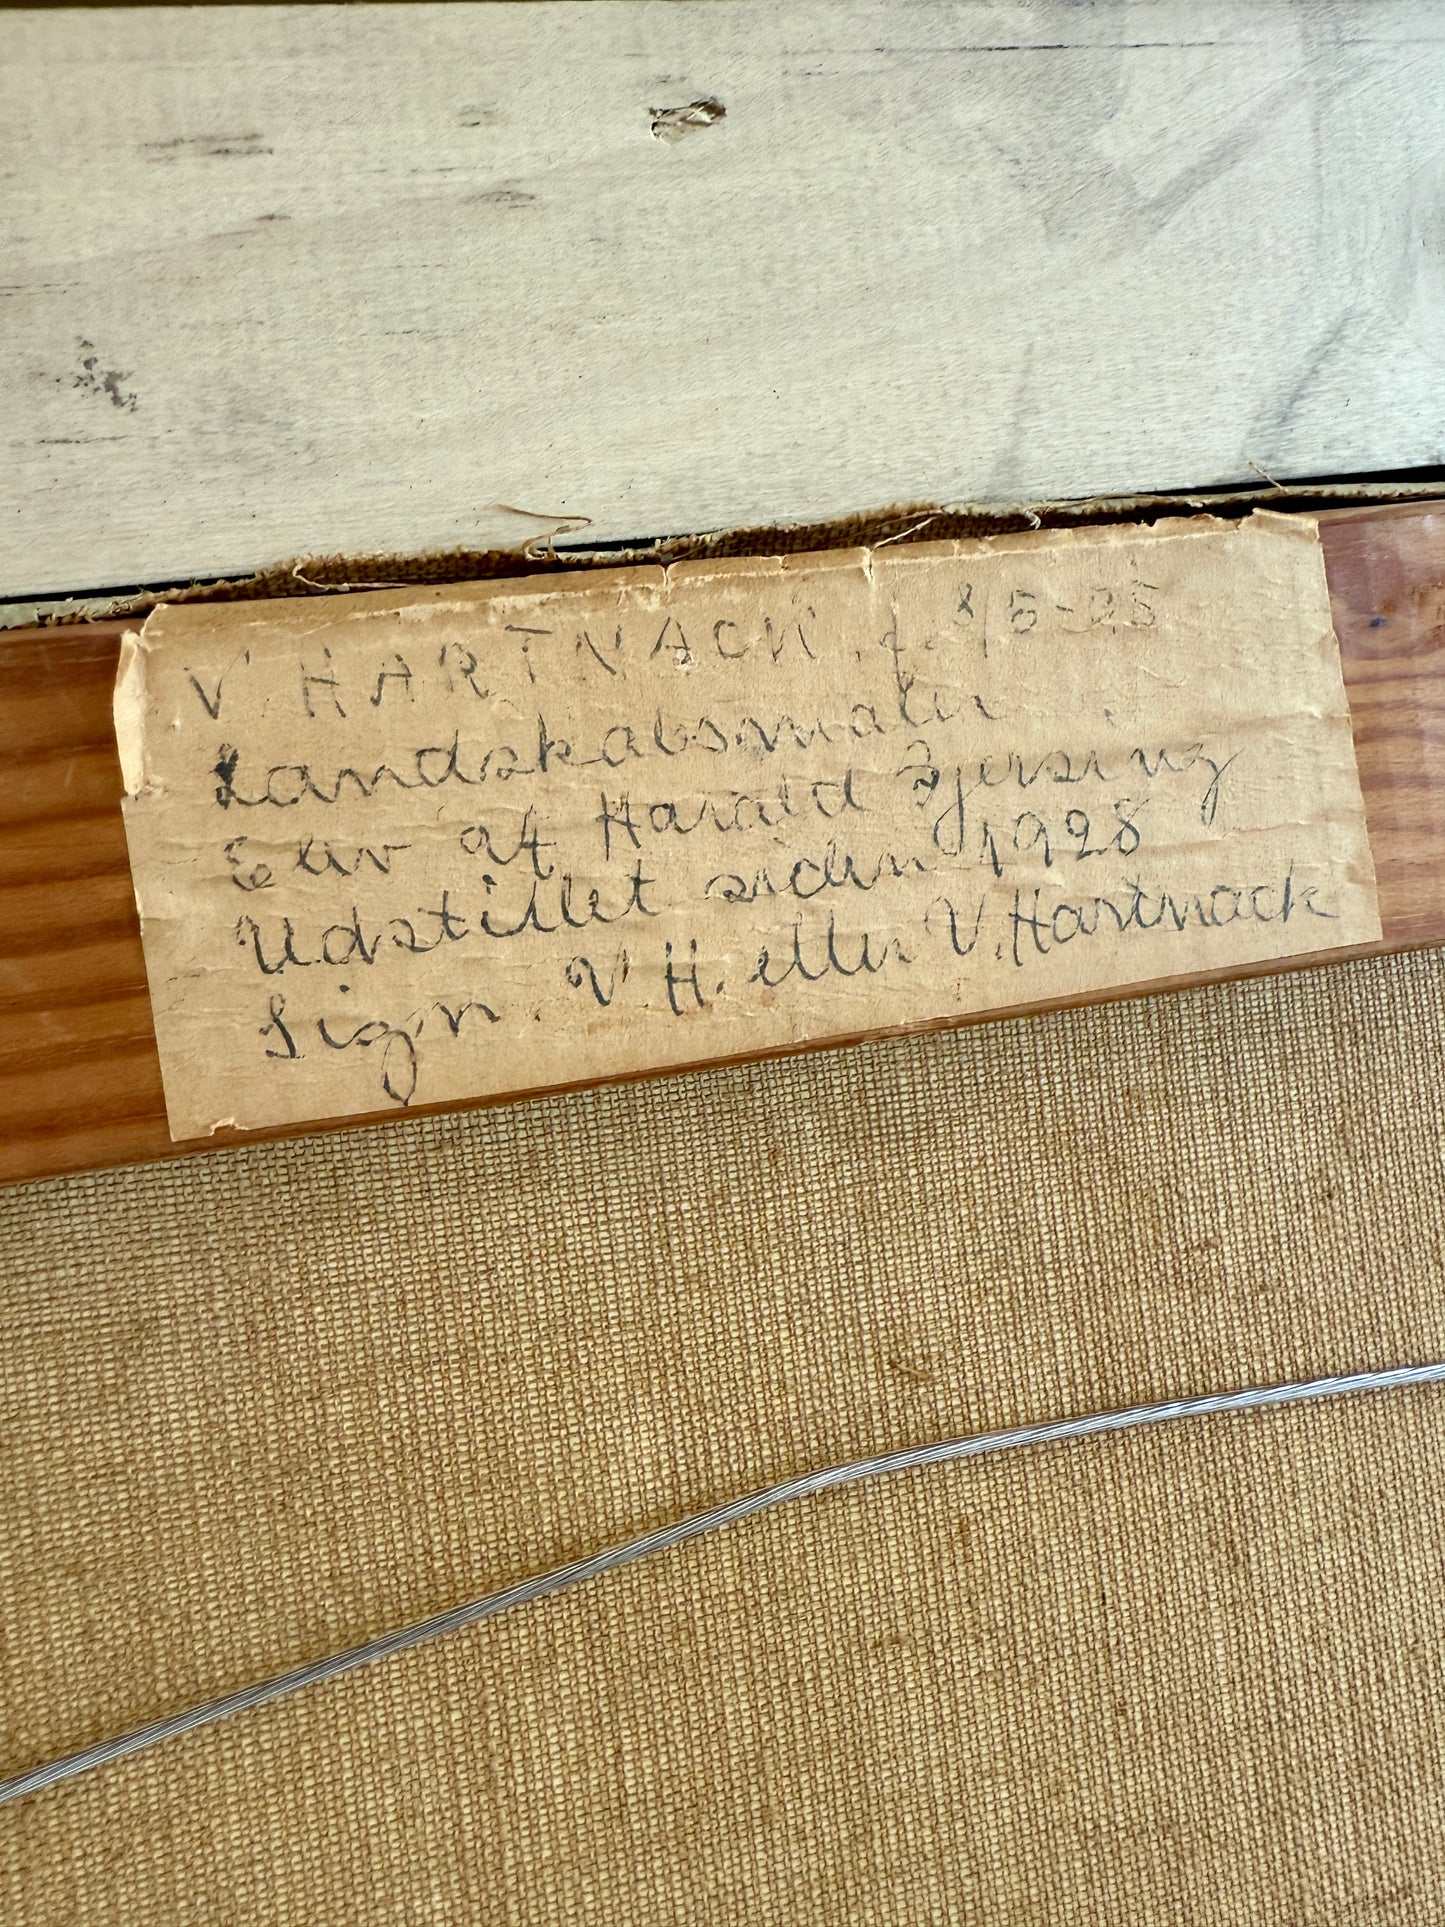 V HARTNACK. f. 8/5-95
Landskabsmaler
Elev af Harald Bjersing
Udstillet siden 1928
Sign. V H. eller V. Hartnack